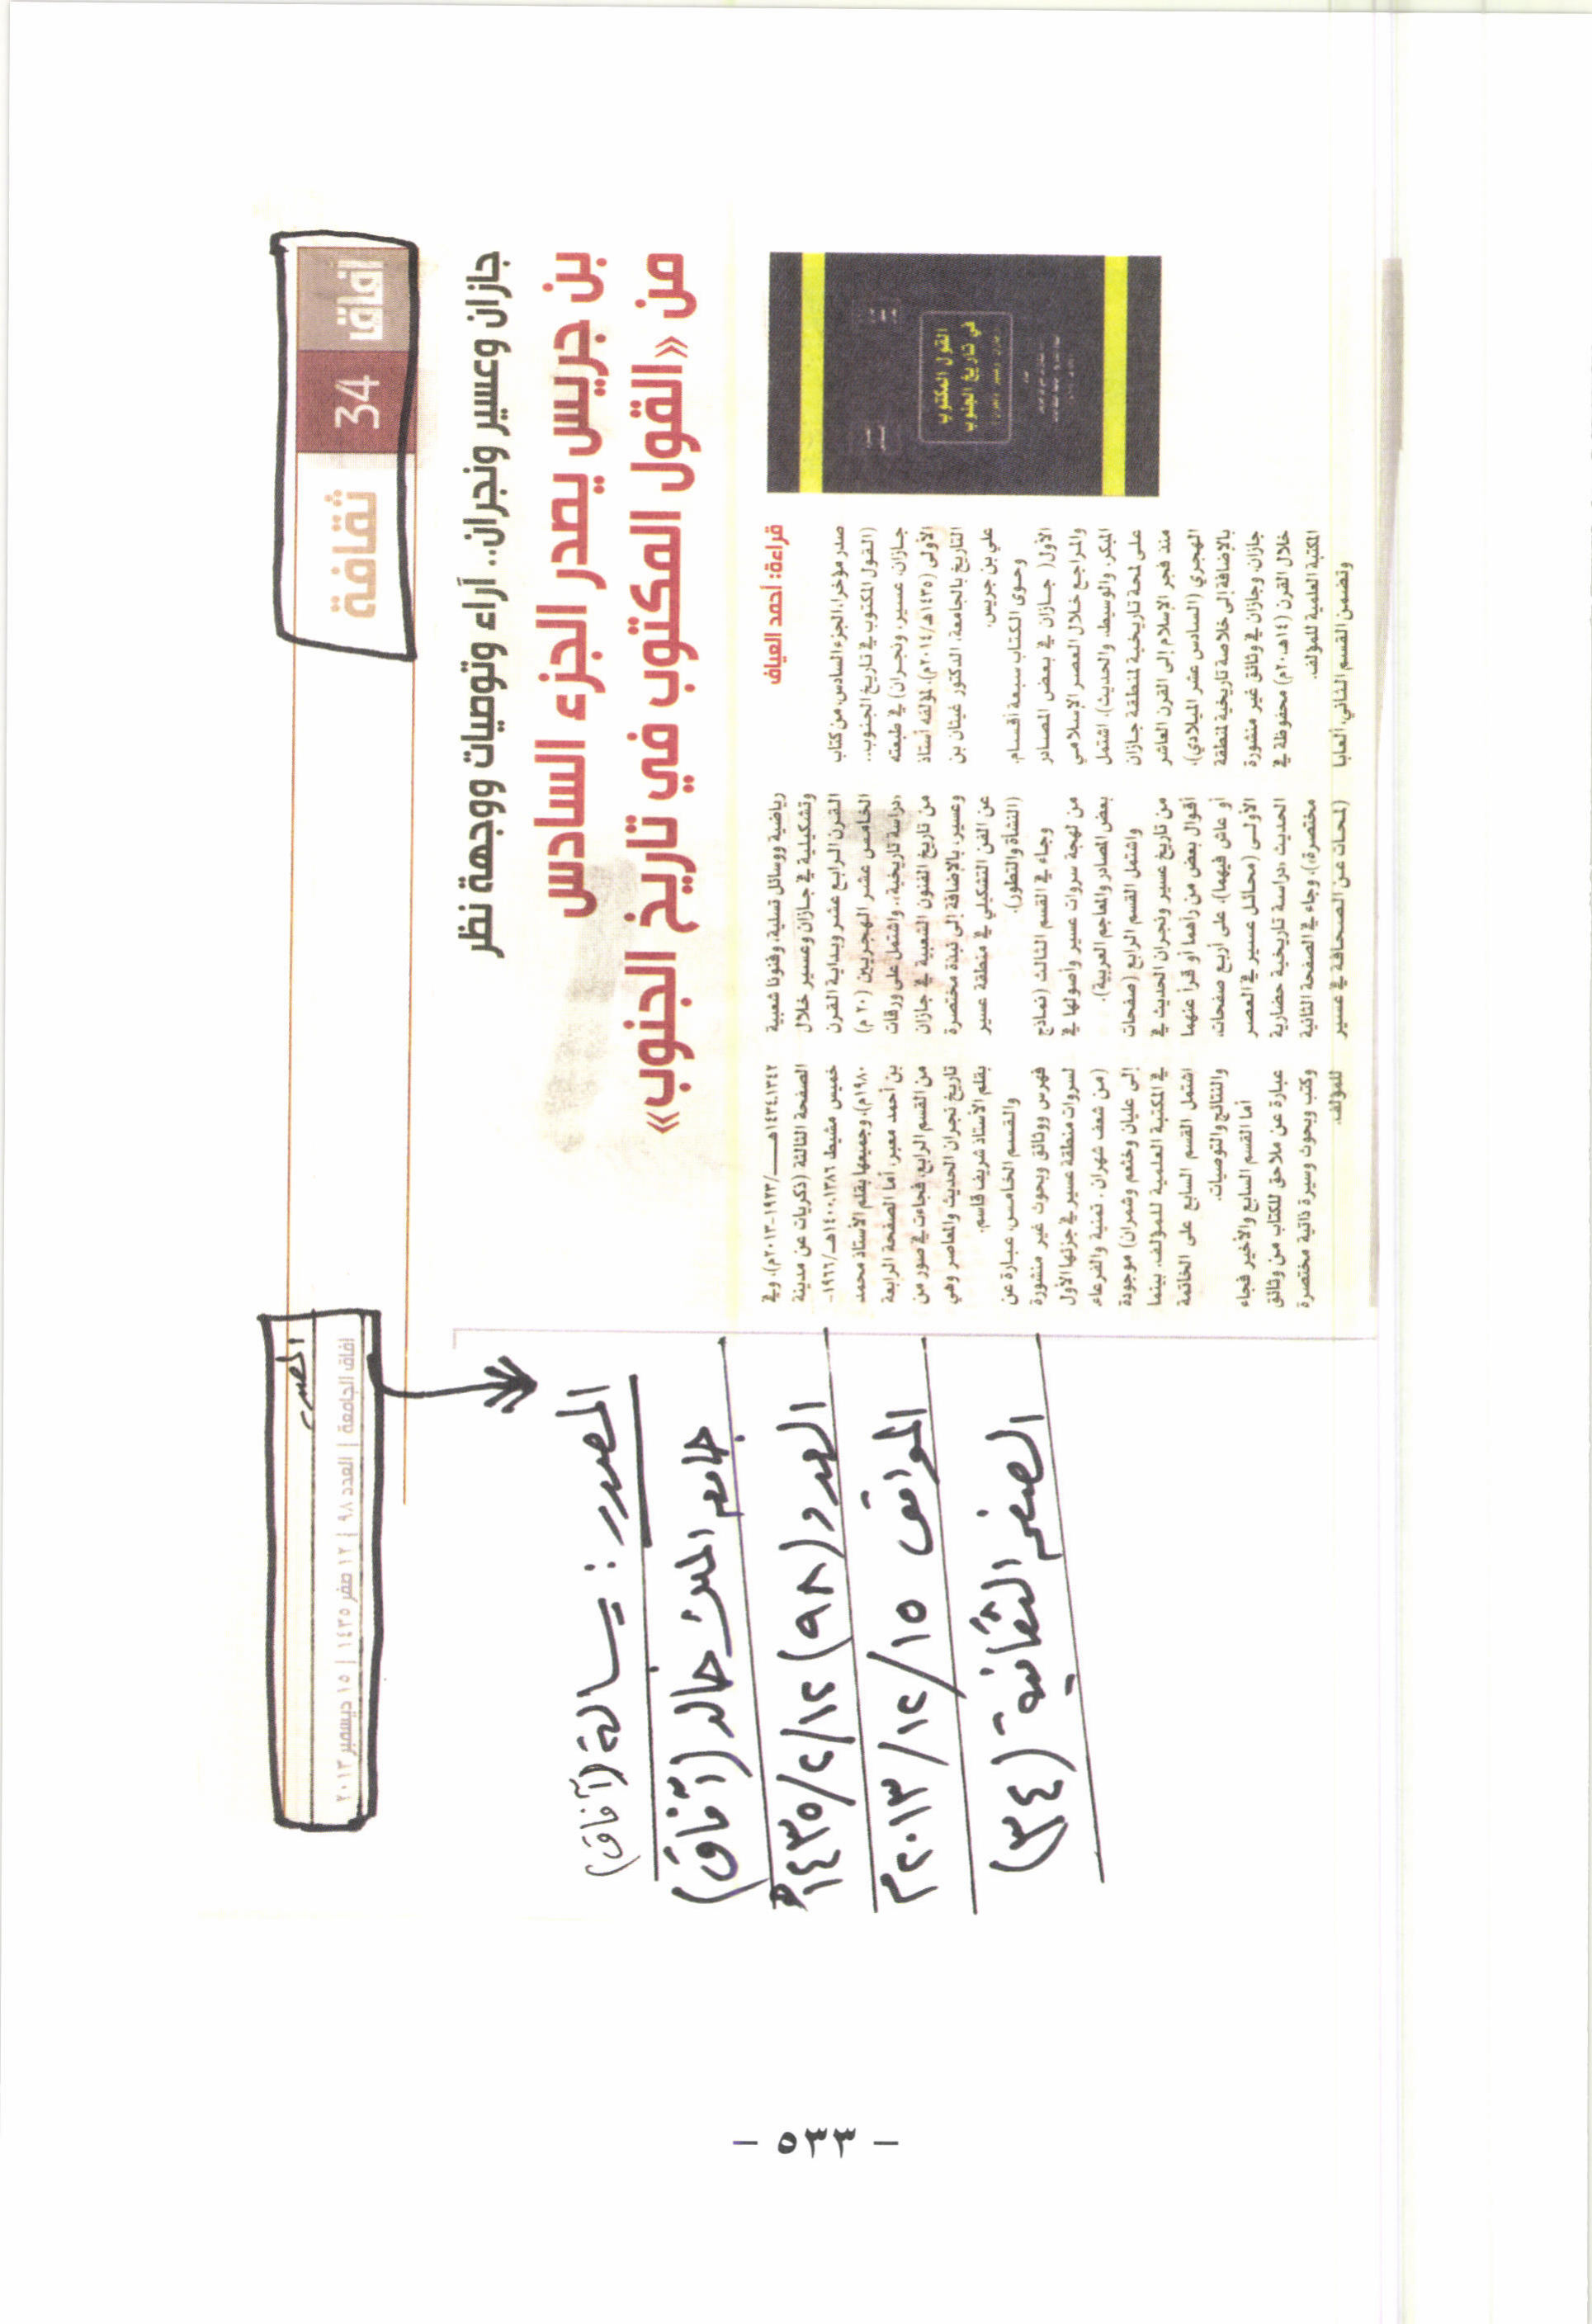 آفاق
34
ثقافة
جازان وعسير ونجران.. آراء وتوصيات ووجهة نظر
بن جريس يصدر الجزء السادس
من «القول المكتوب في تاريخ الجنوب»
القول المكتوب
في تاريخ الجنوب
قراءة: أحمد العياف
صدر مؤخرا، الجزء السادس، من كتاب
(القول المكتوب في تاريخ الجنوب..
جازان، عسير، ونجران) في طبعته
الأولى (١٤٣٥هـ/٢٠١٤م)، لمؤلفه أستاذ
التاريخ بالجامعة، الدكتور غيثان بن
علي بن جريس.
وحوى الكتاب سبعة أقسام،
الأول( جازان في بعض المصادر
والمراجع خلال العصر الإسلامي
المبكر، والوسيط، والحديث)، اشتمل
على لمحة تاريخية لمنطقة جازان
منذ فجر الإسلام إلى القرن العاشر
الهجري (السادس عشر الميلادي)،
بالإضافة إلى خلاصة تاريخية لمنطقة
جازان وجازان في وثائق غير منشورة
خلال القرن (١٤هـ-٢٠م) محفوظة في
المكتبة العلمية للمؤلف.
وتضمن القسم الثاني، ألعابا
رياضية ووسائل تسلية، وفنونا شعبية
وتشكيلية في جازان وعسير خلال
القرن الرابع عشر وبداية القرن
الخامس عشر الهجريين (٢٠ م)
«دراسة تاريخية»، واشتمل على ورقات
من تاريخ الفنون الشعبية في جازان
وعسير، بالإضافة إلى نبذة مختصرة
عن الفن التشكيلي في منطقة عسير
(النشأة والتطور).
وجاء في القسم الثالث (نماذج
من لهجة سروات عسير وأصولها في
بعض المصادر والمعاجم العربية).
واشتمل القسم الرابع (صفحات
من تاريخ عسير ونجران الحديث في
أقوال بعض من رآهما أو قرأ عنهما
أو عاش فيهما)، على أربع صفحات،
الأولى (محائل عسير في العصر
الحديث «دراسة تاريخية حضارية
مختصرة»)، وجاء في الصفحة الثانية
(لمحات عن الصحافة في عسير
١٣٤٢-١٤٣٤هـ/١٩٢٣-٢٠١٣م)، وفي
الصفحة الثالثة (ذكريات عن مدينة
خميس مشيط، ١٣٨٦-١٤٠٠هـ/١٩٦٦-
١٩٨٠م)، وجميعها بقلم الأستاذ محمد
بن أحمد معبر، أما الصفحة الرابعة
من القسم الرابع، فجاءت في صور من
تاريخ نجران الحديث والمعاصر وهي
بقلم الأستاذ شريف قاسم.
والقسم الخامس، عبارة عن
فهرس ووثائق وبحوث غير منشورة
لسروات منطقة عسير في جزئها الأول
(من شعف شهران ، تمنية والقرعاء،
إلى عليان وخثعم وشمران) موجودة
في المكتبة العلمية للمؤلف، بينما
اشتمل القسم السابع على الخاتمة
والنتائج والتوصيات.
أما القسم السابع والأخير فجاء
عبارة عن ملاحق للكتاب من وثائق
وكتب وبحوث وسيرة ذاتية مختصرة
للمؤلف.
المصدر
آفاق الجامعة | العدد ٩٨ | ١٢ صفر ١٤٣٥ | ١٥ ديسمبر ٢٠١٣
المصدر : رسالة (آفاق)
جامعة الملك خالد (آفاق)
العدد (٩٨) ١٢/٢/١٤٣٥هـ
الموافق ١٥/١٢/٢٠١٣م
الصفحة الثقافية (٣٤)
- ٥٣٣ -